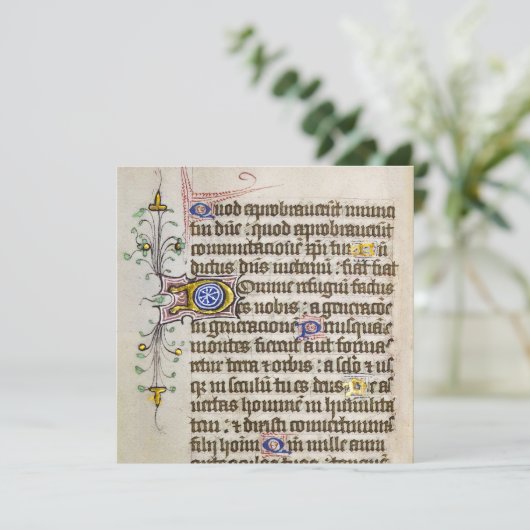 Quod exprobrauerūt inimi
tui dn̄e : quod exprobrauerūt
commutacionē xp̄i tui Bn̄
dictus dn̄s in eternū : fiat fiat
Domine refugiū factus
es nobis : a generacōe
in generacione Priusquā
montes fierent aut forma
retur terra & orbis : a sclo & us
q; in seculū tu es deus Ne a
uertas hominē in humilita
tem : & dixisti conuertimini
filij hoīm Qm̄ mille anni
ante oculos tuos : tanquā